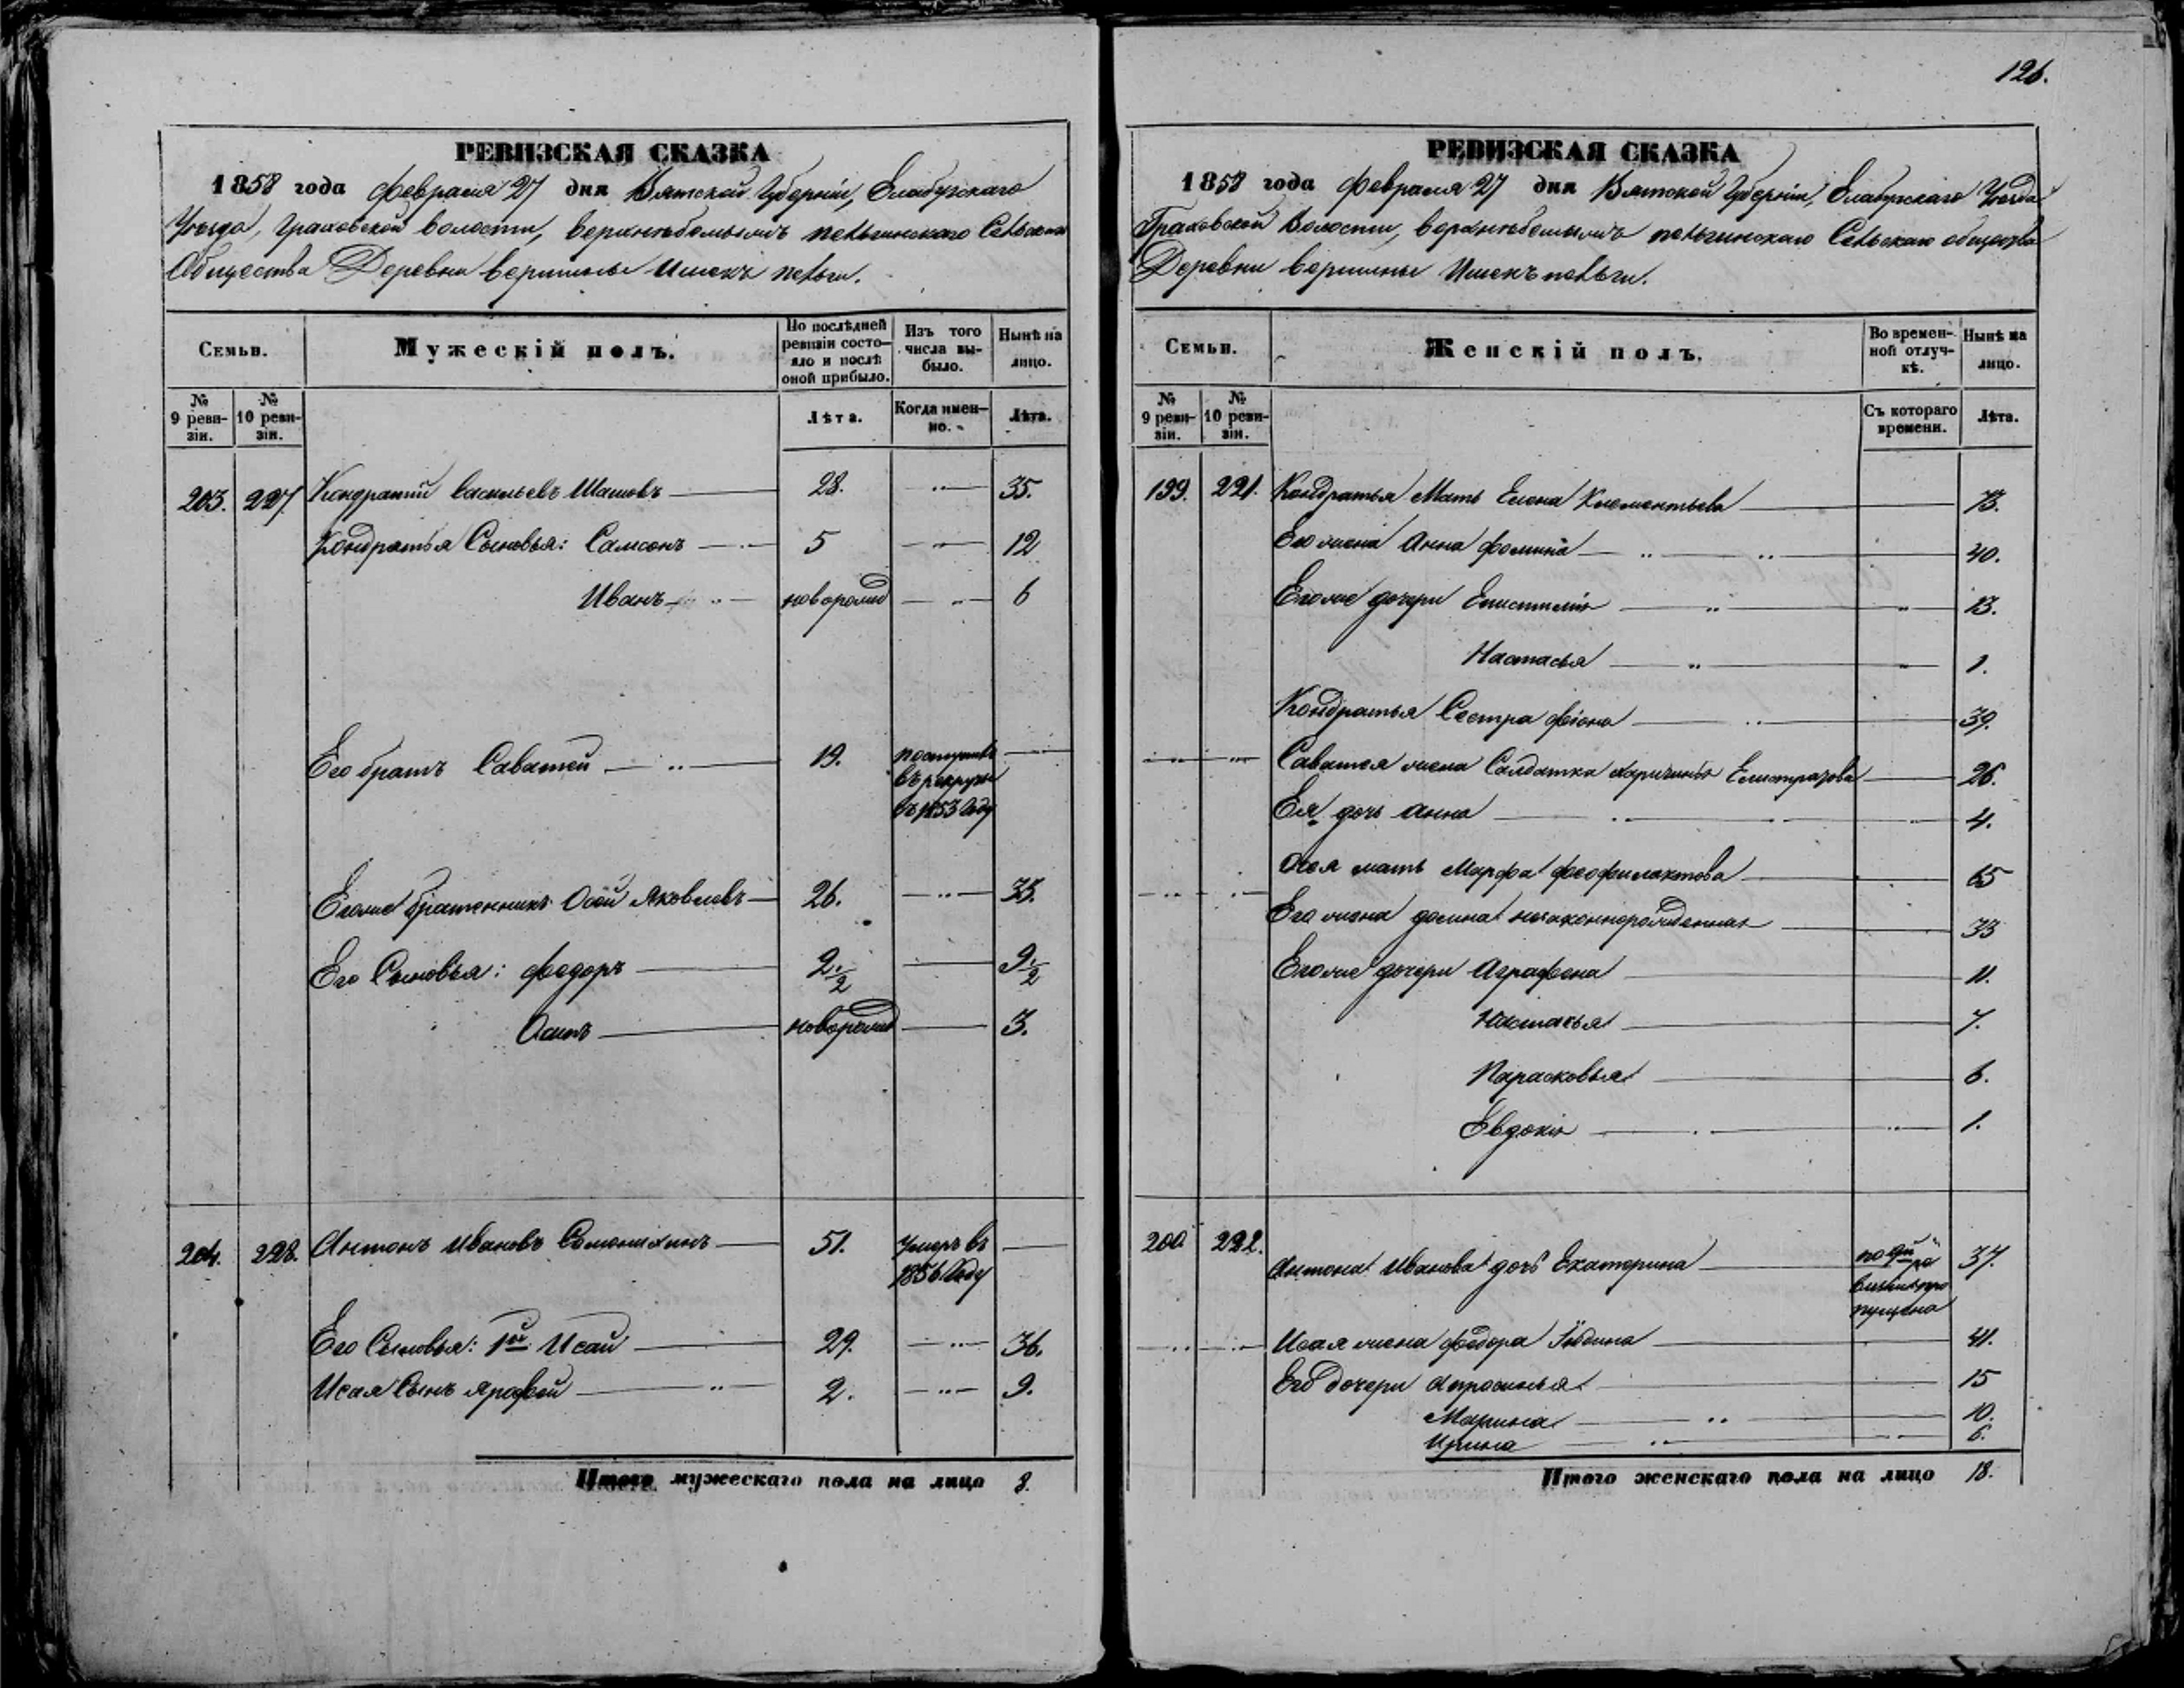 126.
РЕВИЗСКАЯ СКАЗКА
1858 года февраля 27 дня Вятской Губерніи, Елабужскаго
Уѣзда, Граховской волости, верхнебемыжъ пельгинскаго Сельскаго
Общества Деревни вершины Ишекъ пельги.
Семьи.
Мужескій полъ.
По послѣдней ревизіи состояло и послѣ оной прибыло.
Изъ того числа выбыло.
Нынѣ на лицо.
№ 9 ревизіи.
№ 10 ревизіи.
Лѣта.
Когда именно.
Лѣта.
203. 227. Кондратій Васильевъ 28. 35.
Кондратья Сыновья: Самсонъ 5 12
Иванъ новорожд 6
Его братъ Саватей 19. поступилъ
въ рекруты
въ 1853 Году
Его же братенникъ Яковлевъ 26. 33.
Его Сыновья: Федоръ 2 1/2 9 1/2
Осипъ новорожд 3.
204. 228. Антонъ Ивановъ 51. умеръ въ
1856 Году
Его Сыновья: 1й Исай 29. 36.
Исая Сынъ Ярофей 2. 9.
Итого мужескаго пола на лицо 8.
РЕВИЗСКАЯ СКАЗКА
1858 года февраля 27 дня Вятской Губерніи, Елабужскаго Уѣзда
Граховской Волости, верхнебемыжъ пельгинскаго Сельскаго общества
Деревни вершины Ишекъ пельги.
Семьи.
Женскій полъ.
Во временной отлучкѣ.
Нынѣ на лицо.
№ 9 ревизіи.
№ 10 ревизіи.
Съ котораго времени.
Лѣта.
199. 221. Кондратья Мать Елена Клементьева 73.
Его жена Анна Фомина 40.
Его же дочери Епистимія 13.
Настасья 1.
Кондратья Сестра Фіона 39.
Саватея жена Салдатка Елистратова 26.
Ея дочь Анна 4.
мать Марфа Феофилактова 65
Его жена Домна незаконнорожденная 33
Его же дочери Аграфена 11.
Настасья 7.
Парасковья 6.
Евдокія 1.
200. 222. Антона Иванова дочь Екатерина 37.
пущена
Исая жена Федора 41.
Его дочери Апросинья 15
Марина 10.
Ирина 6.
Итого женскаго пола на лицо 18.